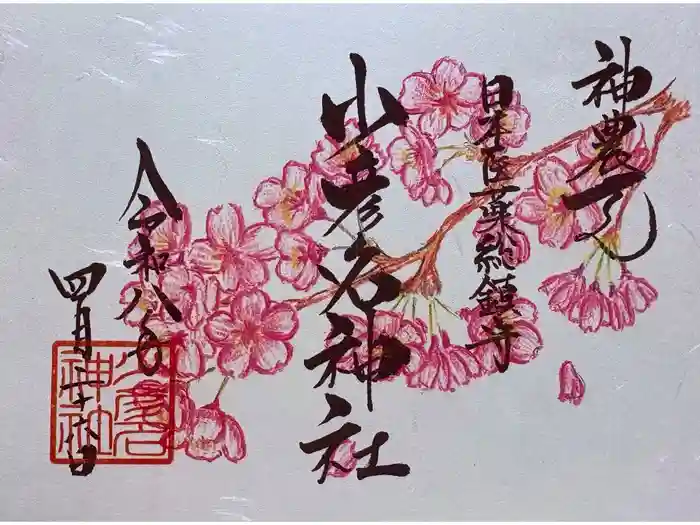 神農さん
日本医薬総鎮守
少彦名神社
令和八年
四月二十六日
少彦名神社